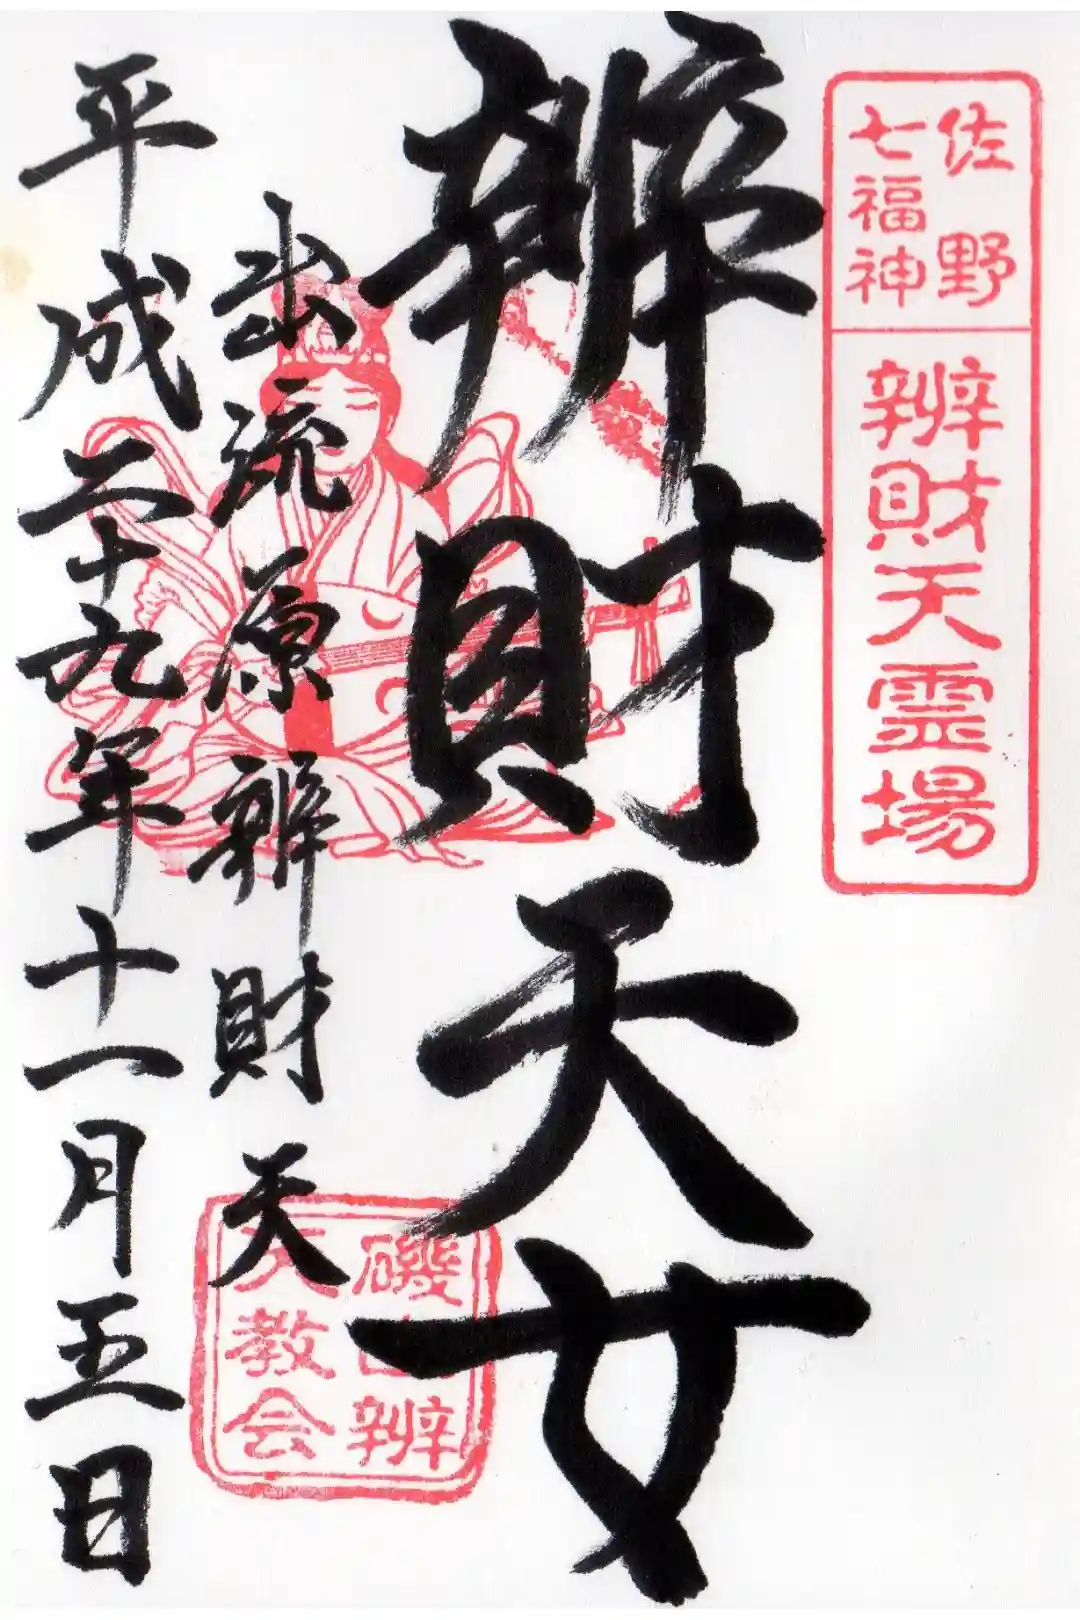 佐野
七福神
辨財天霊場
辨財天女
出流原辨財天
平成二十九年十一月五日
磯山辨
天教会